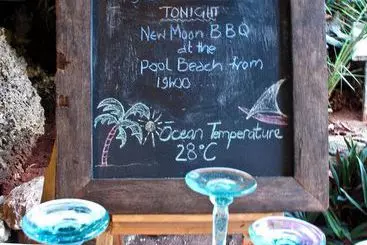 TONIGHT
New Moon BBQ
at the
Pool Beach from
19h00
Ocean Temperature
28°C